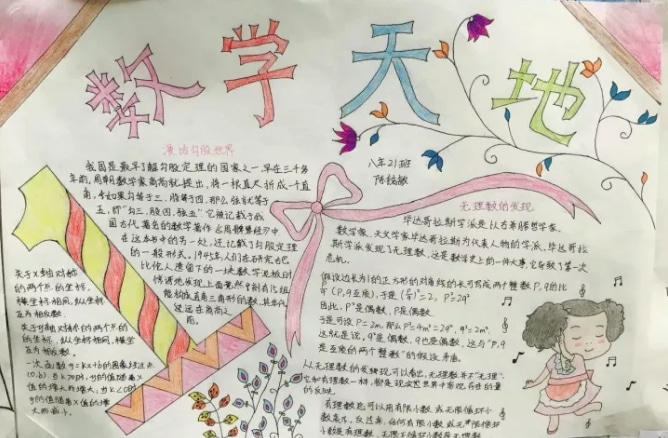 数学天地
八年21班
勾股世界
我国是最早了解勾股定理的国家之一。早在三千多
年前,周朝数学家商高就提出,将一根直尺折成一个直
角,如果勾等于三,股等于四,那么弦就等于
五,即“勾三、股四、弦五”它被记载于我
国古代著名的数学著作《周髀算经》中
在这本书中的另一处,还记载了勾股定理
的一般形式。1945年,人们在研究古巴
比伦人遗留下的一块数学泥板时
惊讶地发现上面竟然
能构成直角三角形的数,其年代
远远在商高之
前。
关于x轴对称
的两个点的坐标,
横坐标相同,纵坐标
互为相反数。
的坐标,纵坐标相同,横坐标
互为相反数。
一次函数y=kx+b的图象经过点
(0,b)当k>0时,y的值随着x
值的增大而增大,当k<0时
y的值随着x值的增
大而减小。
无理数的发现
毕达哥拉斯学派是以古希腊哲学家、
数学家、天文学家毕达哥拉斯为代表人物的学派,毕达哥拉
斯学派发现了无理数,这是数学史上的一件大事,它导致了第一次
危机。
假设边长为1的正方形的对角线的长可写成两个整数P,q的比
即(P,q互质),于是(P/q)²=2,P²=2q²
因此,P²是偶数,P是偶数。
于是可设P=2m,那么P²=4m²=2q²,q²=2m²,
这就是说,q²是偶数,q也是偶数,这与“P,q
是互质的两个整数”的假设矛盾。
从无理数的发现可以看出,无理数并不“无理”
它和有理数一样,都是现实世界中客观存在的量
的反映。
有理数总可以用有限小数或无限循环小
数表示,反过来,任何有限小数或无限循环
小数是有理数,无限不循环小数是无理数